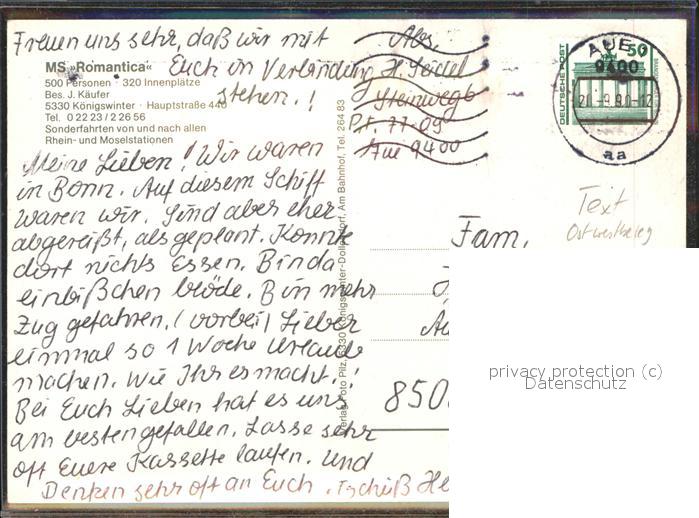 Freuen uns sehr, daß wir mit
Euch in Verbindung
stehen.!
MS »Romantica«
500 Personen · 320 Innenplätze
Bes. J. Käufer
5330 Königswinter · Hauptstraße 44
Tel. 0 22 23 / 2 26 56
Sonderfahrten von und nach allen
Rhein- und Moselstationen
Meine Lieben! Wir waren
in Bonn. Auf diesem Schiff
waren wir. Sind aber eher
abgereißt, als geplant. Konnte
dort nichts Essen. Bin da
ein bißchen blöde. Bin mehr
Zug gefahren. (vorbei) Lieber
einmal so 1 Woche Urlaub
machen. Wie Ihr es macht.!
Bei Euch Lieben hat es uns
am besten gefallen. Lasse sehr
oft Euere Kassette laufen. Und
Denken sehr oft an Euch. Tschüß He
Verlag Foto Pilz, 5330 Königswinter-Dollendorf, Am Bahnhof, Tel. 264 83
Abs.
H. Seidel
Steinweg 6
P.f. 77-09
Aue 9400
DEUTSCHE POST
50
AUE
9400
20.-9.90-12
aa
Text
Ost westkrieg
Fam.
850
privacy protection (c)
Datenschutz